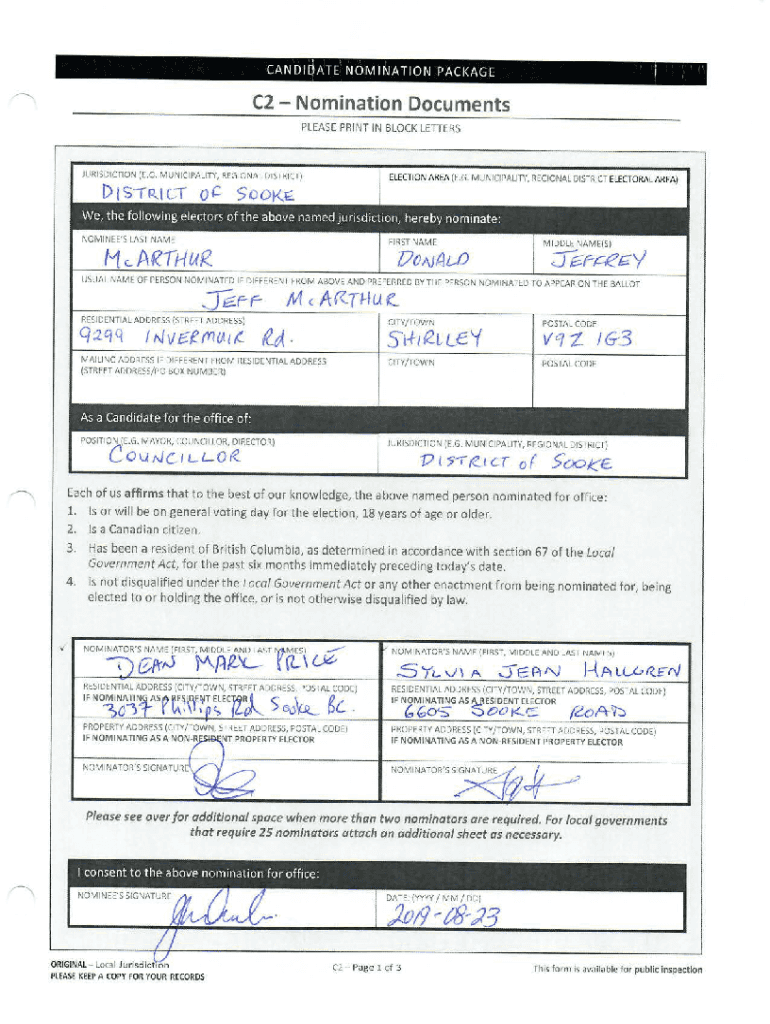 CANDIDATE NOMINATION PACKAGE
C2 – Nomination Documents
PLEASE PRINT IN BLOCK LETTERS
JURISDICTION (E.G. MUNICIPALITY, REGIONAL DISTRICT) ELECTION AREA (E.G. MUNICIPALITY, REGIONAL DISTRICT ELECTORAL AREA)
DISTRICT OF SOOKE
We, the following electors of the above named jurisdiction, hereby nominate:
NOMINEE'S LAST NAME FIRST NAME MIDDLE NAME(S)
McARTHUR DONALD JEFFREY
USUAL NAME OF PERSON NOMINATED IF DIFFERENT FROM ABOVE AND PREFERRED BY THE PERSON NOMINATED TO APPEAR ON THE BALLOT
JEFF McARTHUR
RESIDENTIAL ADDRESS (STREET ADDRESS) CITY/TOWN POSTAL CODE
9299 INVERMUIR Rd. SHIRLLEY V9Z 1G3
MAILING ADDRESS IF DIFFERENT FROM RESIDENTIAL ADDRESS CITY/TOWN POSTAL CODE
(STREET ADDRESS/PO BOX NUMBER)
As a Candidate for the office of:
POSITION (E.G. MAYOR, COUNCILLOR, DIRECTOR) JURISDICTION (E.G. MUNICIPALITY, REGIONAL DISTRICT)
COUNCILLOR DISTRICT of SOOKE
Each of us affirms that to the best of our knowledge, the above named person nominated for office:
1. Is or will be on general voting day for the election, 18 years of age or older.
2. Is a Canadian citizen.
3. Has been a resident of British Columbia, as determined in accordance with section 67 of the Local
Government Act, for the past six months immediately preceding today's date.
4. Is not disqualified under the Local Government Act or any other enactment from being nominated for, being
elected to or holding the office, or is not otherwise disqualified by law.
NOMINATOR'S NAME (FIRST, MIDDLE AND LAST NAMES) NOMINATOR'S NAME (FIRST, MIDDLE AND LAST NAMES)
DEAN MARK PRICE SYLVIA JEAN HALLGREN
RESIDENTIAL ADDRESS (CITY/TOWN, STREET ADDRESS, POSTAL CODE) RESIDENTIAL ADDRESS (CITY/TOWN, STREET ADDRESS, POSTAL CODE)
IF NOMINATING AS A RESIDENT ELECTOR IF NOMINATING AS A RESIDENT ELECTOR
3037 Phillips Rd Sooke BC. 6605 SOOKE ROAD
PROPERTY ADDRESS (CITY/TOWN, STREET ADDRESS, POSTAL CODE) PROPERTY ADDRESS (CITY/TOWN, STREET ADDRESS, POSTAL CODE)
IF NOMINATING AS A NON-RESIDENT PROPERTY ELECTOR IF NOMINATING AS A NON-RESIDENT PROPERTY ELECTOR
NOMINATOR'S SIGNATURE NOMINATOR'S SIGNATURE
Please see over for additional space when more than two nominators are required. For local governments
that require 25 nominators attach an additional sheet as necessary.
I consent to the above nomination for office:
NOMINEE'S SIGNATURE DATE: (YYYY / MM / DD)
2019-08-23
ORIGINAL – Local Jurisdiction C2 – Page 1 of 3 This form is available for public inspection
PLEASE KEEP A COPY FOR YOUR RECORDS